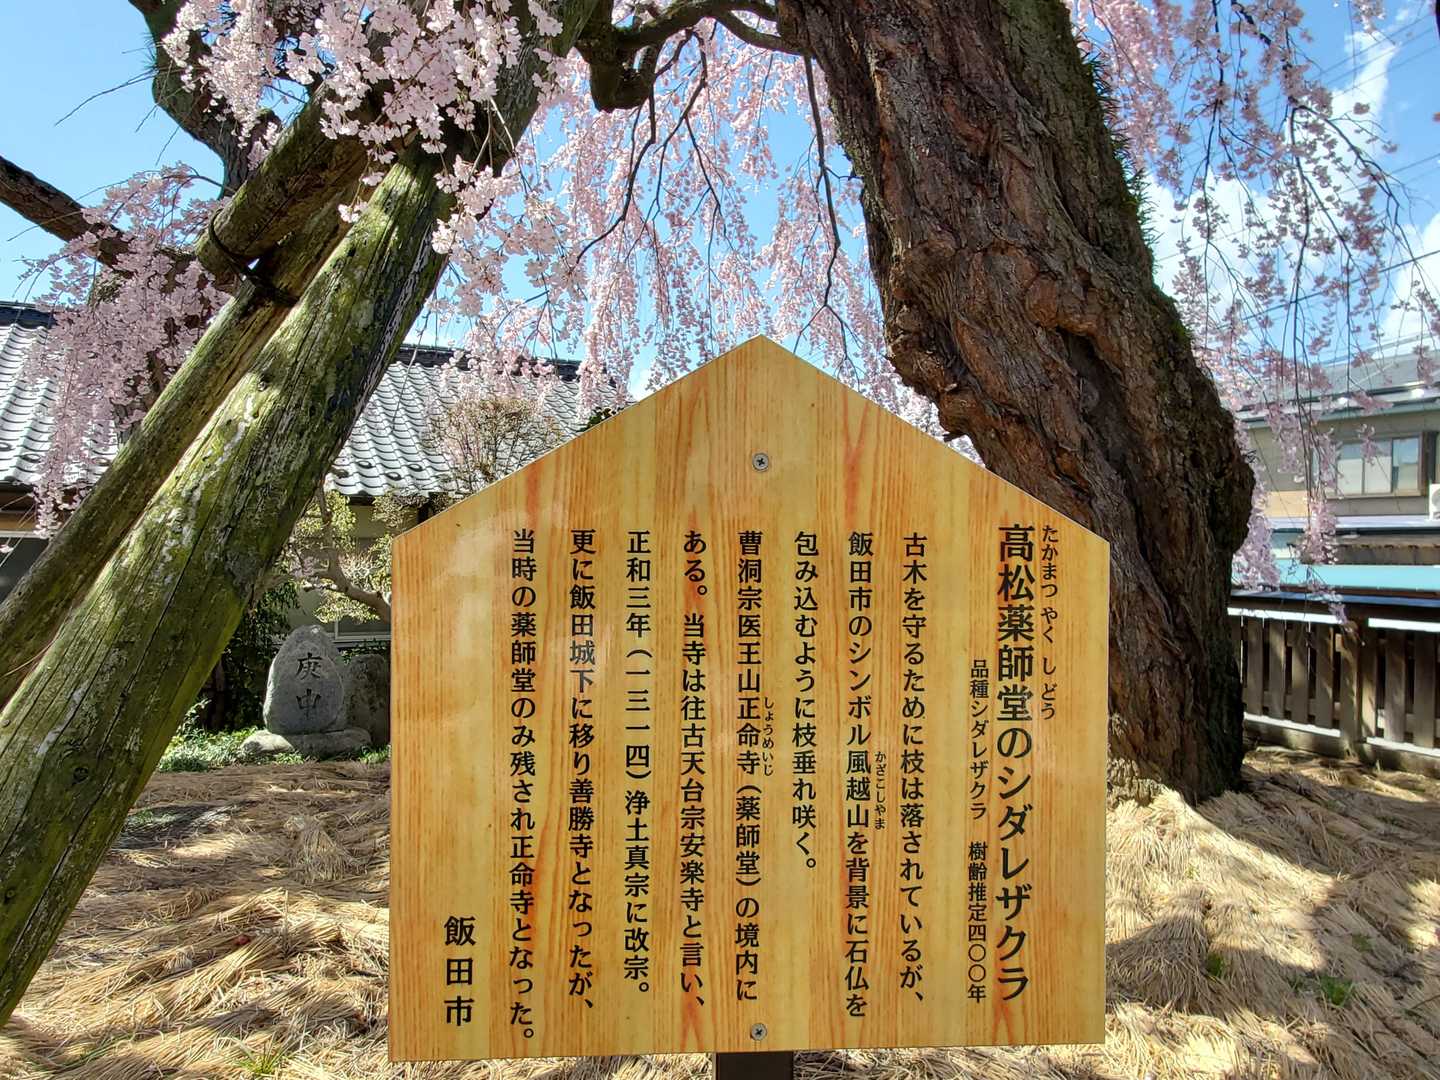 高松薬師堂のシダレザクラ
たかまつ やくしどう
品種シダレザクラ 樹齢推定四〇〇年
古木を守るために枝は落されているが、
飯田市のシンボル風越山を背景に石仏を
かざこしやま
包み込むように枝垂れ咲く。
曹洞宗医王山正命寺(薬師堂)の境内に
しょうめいじ
ある。当寺は往古天台宗安楽寺と言い、
正和三年(一三一四)浄土真宗に改宗。
更に飯田城下に移り善勝寺となったが、
当時の薬師堂のみ残され正命寺となった。
飯田市
庚申